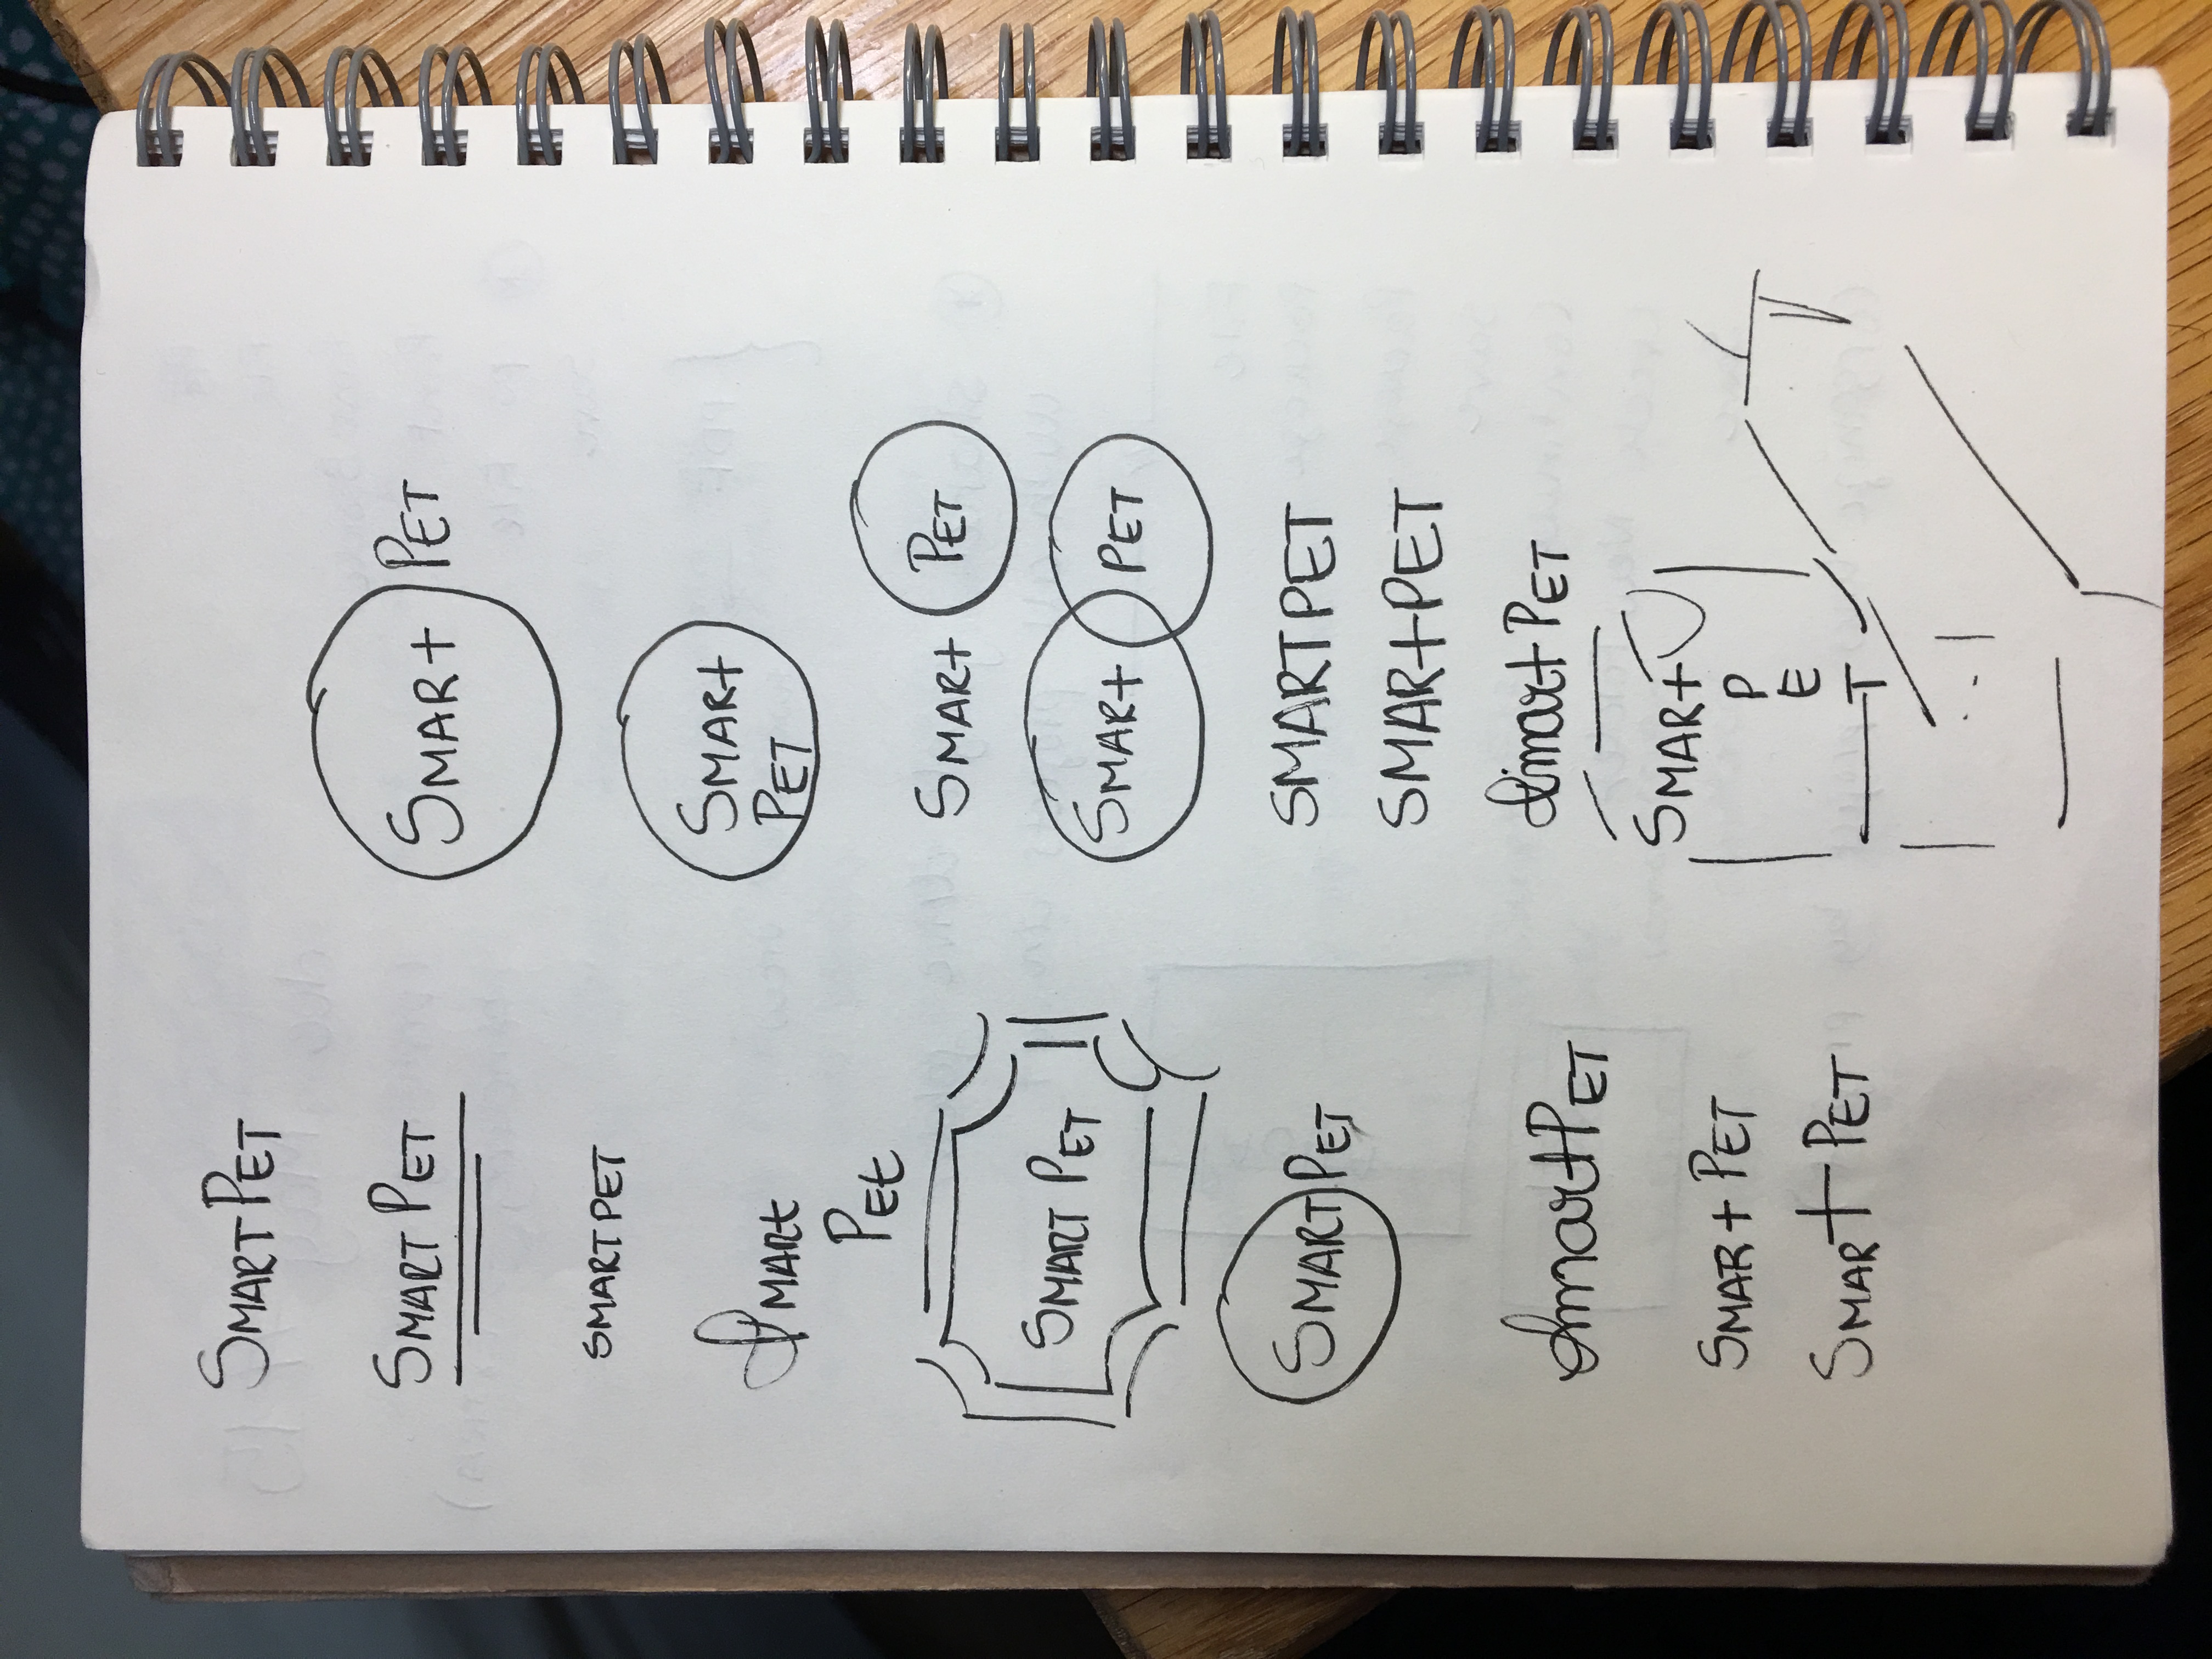 SMARTPET
SMART PET
SMARTPET
SMARt
PEt
SMART PET
SMART PET
SmartPET
SMART PET
SMART PET
SMART PET
SMART
PET
SMART PET
SMART PET
SMARTPET
SMARtPET
Smart PET
SMART
P
E
T